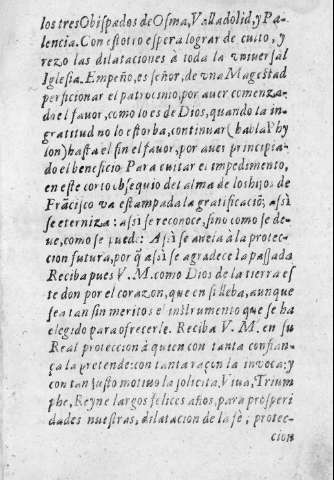 los tres Obispados de Osma, Valladolid, y Pa-
lencia. Con esto otro espera lograr de culto, y
rezo las dilataciones à toda la vniuersal
Iglesia. Empeño, es señor, de vna Magestad
perficionar el patrocinio, por auer comenza-
do el fauor, como lo es de Dios, quando la in-
gratitud no lo estorba, continuar (habla Phy
lon) hasta el fin el fauor, por auer principia-
do el beneficio. Para euitar el impedimento,
en este corto obsequio del alma de los hijos de
Frãcisco va estampada la gratificaciõ; assi
se eterniza: assi se reconoce, sino como se de-
ue, como se puede: Assi se anela à la protec-
cion futura, por q̃ assi se agradece la passada
Reciba pues V. M. como Dios de la tierra es
te don por el corazon, que en si lleba, aunque
sea tan sin meritos el instrumento que se ha
elegido para ofrecerle. Reciba V. M. en su
Real proteccion à quien con tanta confian-
ça la pretende: con tanta raçon la inuoca: y
con tan justo motiuo la solicita. Viua, Trium
phe, Reyne largos felices años, para prosperi
dades nuestras, dilatacion de la fè, protec-
cion